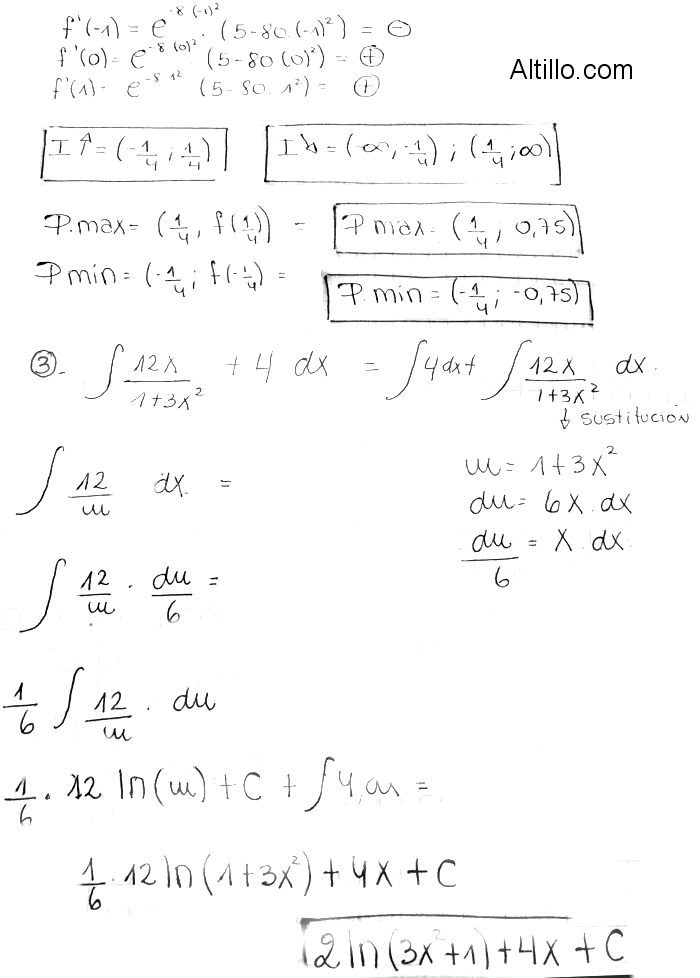 f'(-1) = e^-8(-1)² . (5-80.(-1)²) = ⊖
f'(0) = e^-8(0)² . (5-80(0)²) = ⊕
f'(1) = e^-8 1² (5-80. 1²) = ⊕
Altillo.com
I↑ = (-1/4 ; 1/4)   I↓ = (-∞, -1/4) ; (1/4 ; ∞)
P.max = (1/4, f(1/4)) = P max = (1/4 ; 0,75)
P min = (-1/4 ; f(-1/4) = P. min = (-1/4 ; -0,75)
③- ∫ 12x/(1+3x²) + 4 dx = ∫4dx + ∫ 12x/(1+3x²) dx.
↓ sustitución
∫ 12/u dx. =   u = 1+3x²
du = 6x.dx
∫ 12/u . du/6 =   du/6 = x.dx
1/6 ∫ 12/u . du
1/6 . 12 ln(u) + C + ∫4 =
1/6 . 12 ln(1+3x²) + 4x + C
2 ln(3x²+1) + 4x + C